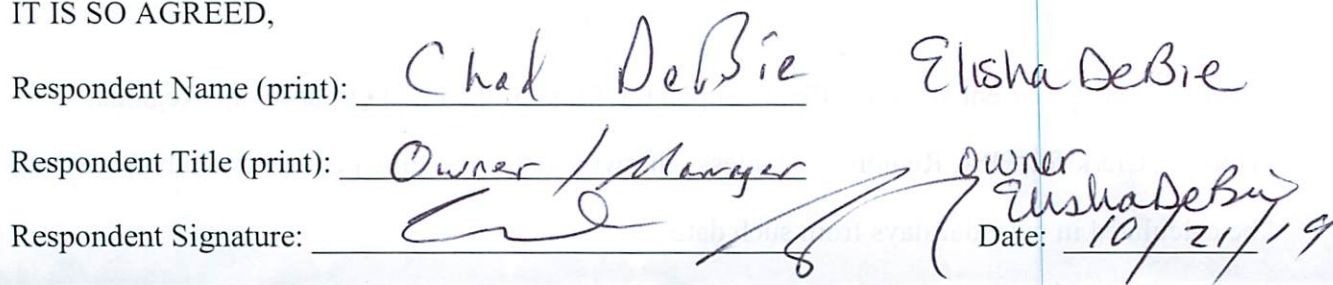 IT IS SO AGREED,
Respondent Name (print): Chad DeBie Elisha DeBie
Respondent Title (print): Owner / Manager owner
Elisha DeBie
Respondent Signature: Date: 10/21/19